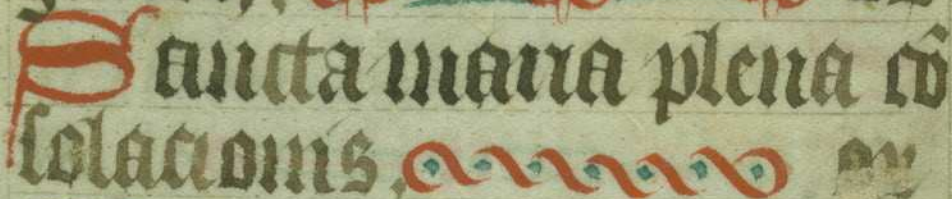 Sancta maria plena cō
solacionis.